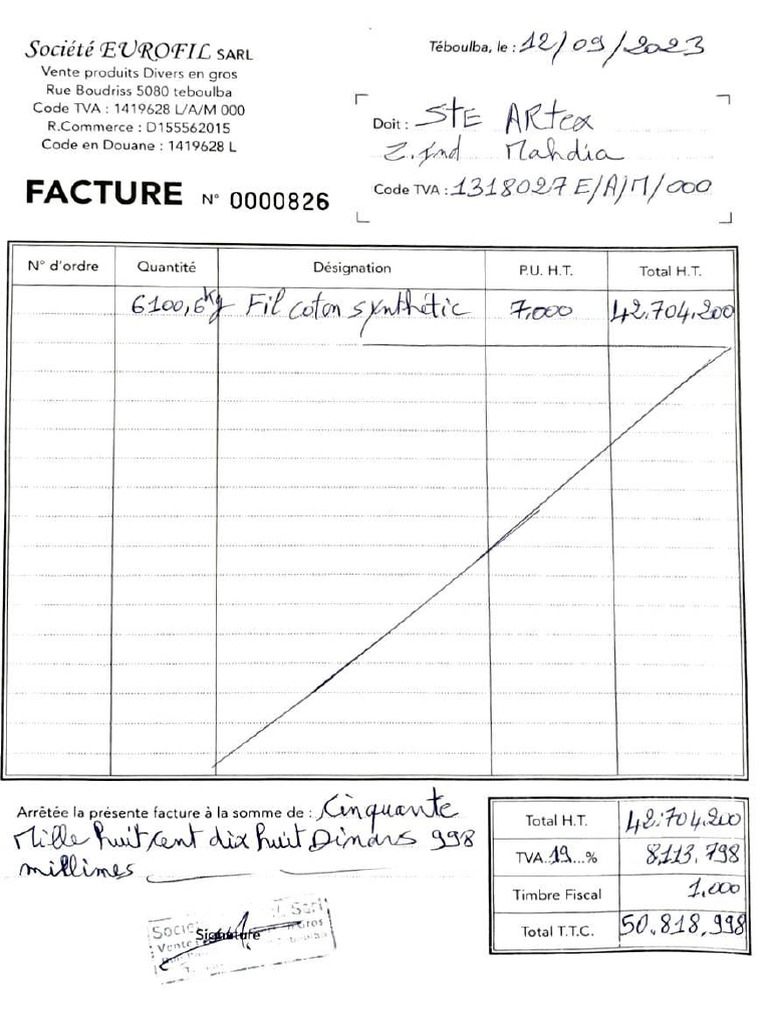 Société EUROFIL SARL
Vente produits Divers en gros
Rue Boudriss 5080 teboulba
Code TVA : 1419628 L/A/M 000
R.Commerce : D155562015
Code en Douane : 1419628 L
FACTURE N° 0000826
Téboulba, le : 12/09/2023
Doit : StE ARtex
Z.Ind Mahdia
Code TVA : 1318027 E/A/M/000
N° d'ordre Quantité Désignation P.U. H.T. Total H.T.
6100,6kg Fil coton synthétic 7,000 42.704.200
Arrêtée la présente facture à la somme de : Cinquante
Mille huit cent dix huit Dinars 998
millimes
Total H.T. 42.704.200
TVA 19...% 8113.798
Timbre Fiscal 1,000
Total T.T.C. 50.818,998
Signature